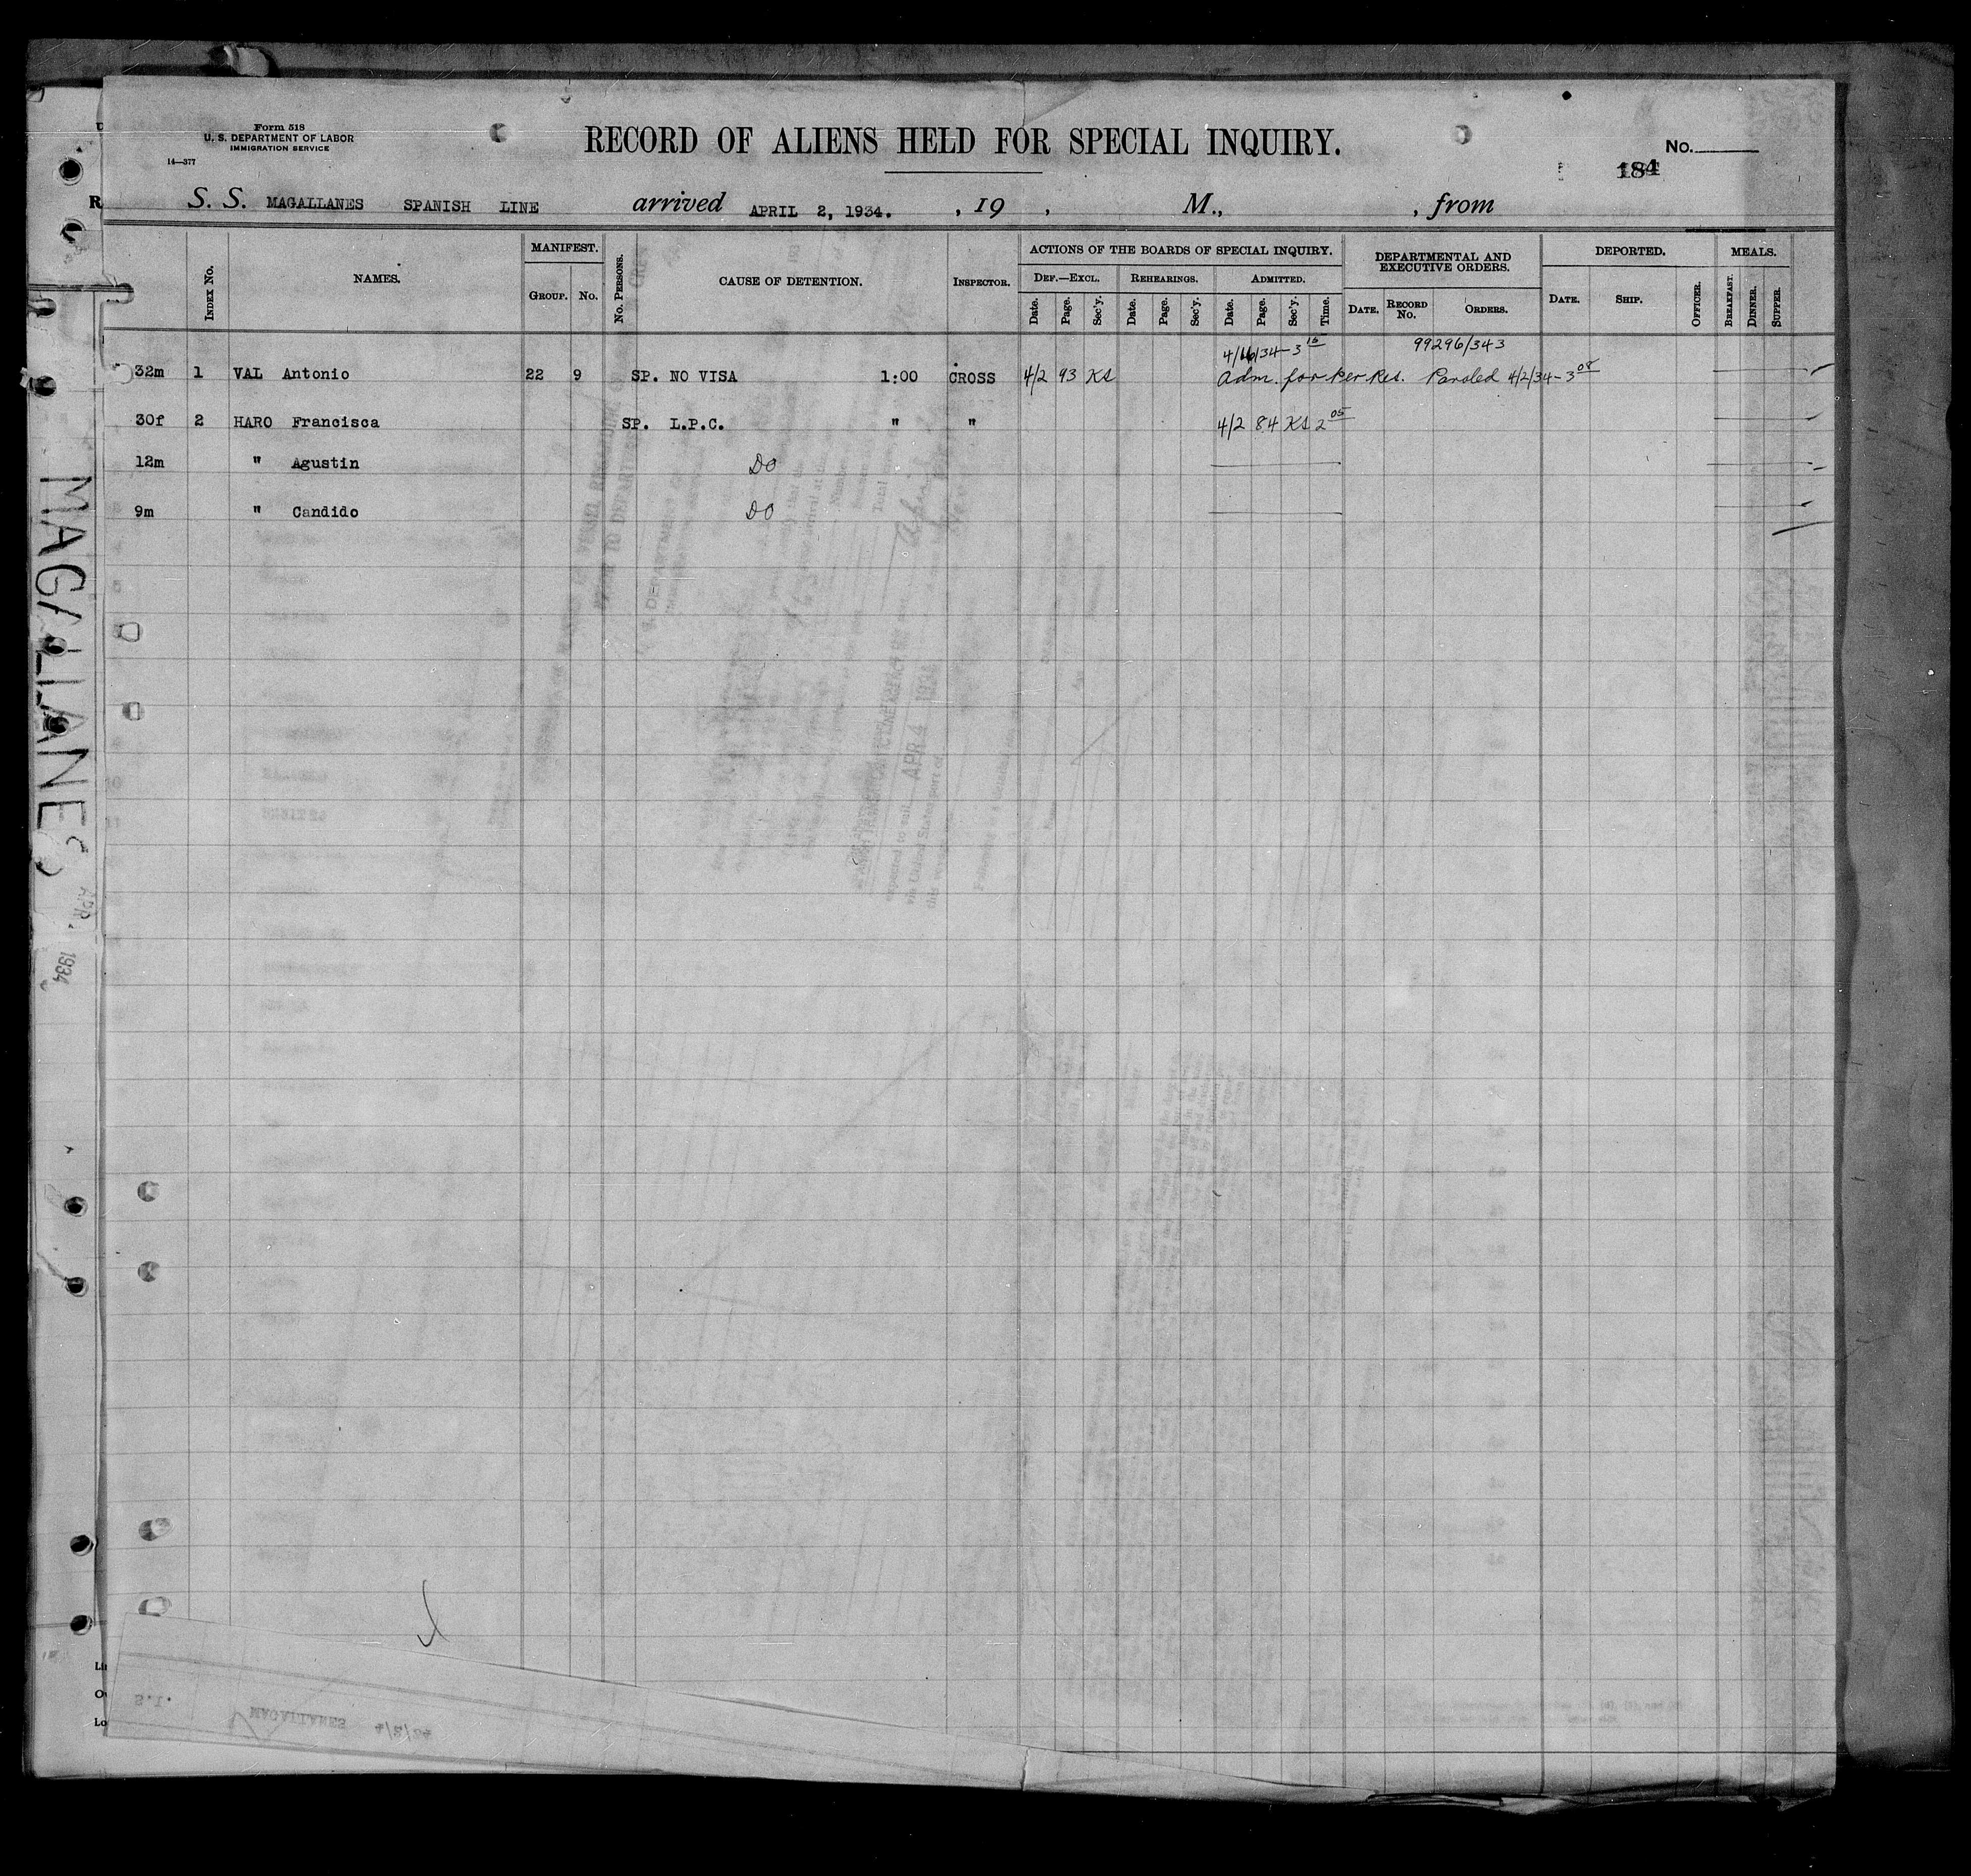 Form 518
U. S. DEPARTMENT OF LABOR
IMMIGRATION SERVICE
14—377
RECORD OF ALIENS HELD FOR SPECIAL INQUIRY.
No.
184
S. S. MAGALLANES SPANISH LINE arrived APRIL 2, 1934. , 19 , M., , from
INDEX No. NAMES. MANIFEST. GROUP. No. No. PERSONS. CAUSE OF DETENTION. INSPECTOR.
ACTIONS OF THE BOARDS OF SPECIAL INQUIRY.
DEF.—EXCL. REHEARINGS. ADMITTED.
Date. Page. Sec'y. Date. Page. Sec'y. Date. Page. Sec'y. Time.
DEPARTMENTAL AND EXECUTIVE ORDERS.
DATE. RECORD No. ORDERS.
DEPORTED.
DATE. SHIP. OFFICER.
MEALS.
BREAKFAST. DINNER. SUPPER.
99296/343
32m 1 VAL Antonio 22 9 SP. NO VISA 1:00 CROSS 4/2 93 KS Adm. for Per Res. Paroled 4/2/34-3 08
30f 2 HARO Francisca SP. L.P.C. " " 4/2 84 KS 2 05
12m " Agustin DO
9m " Candido DO
MAGALLANES
APR. 1934
S.I.
MAGALLANES 4/2/34